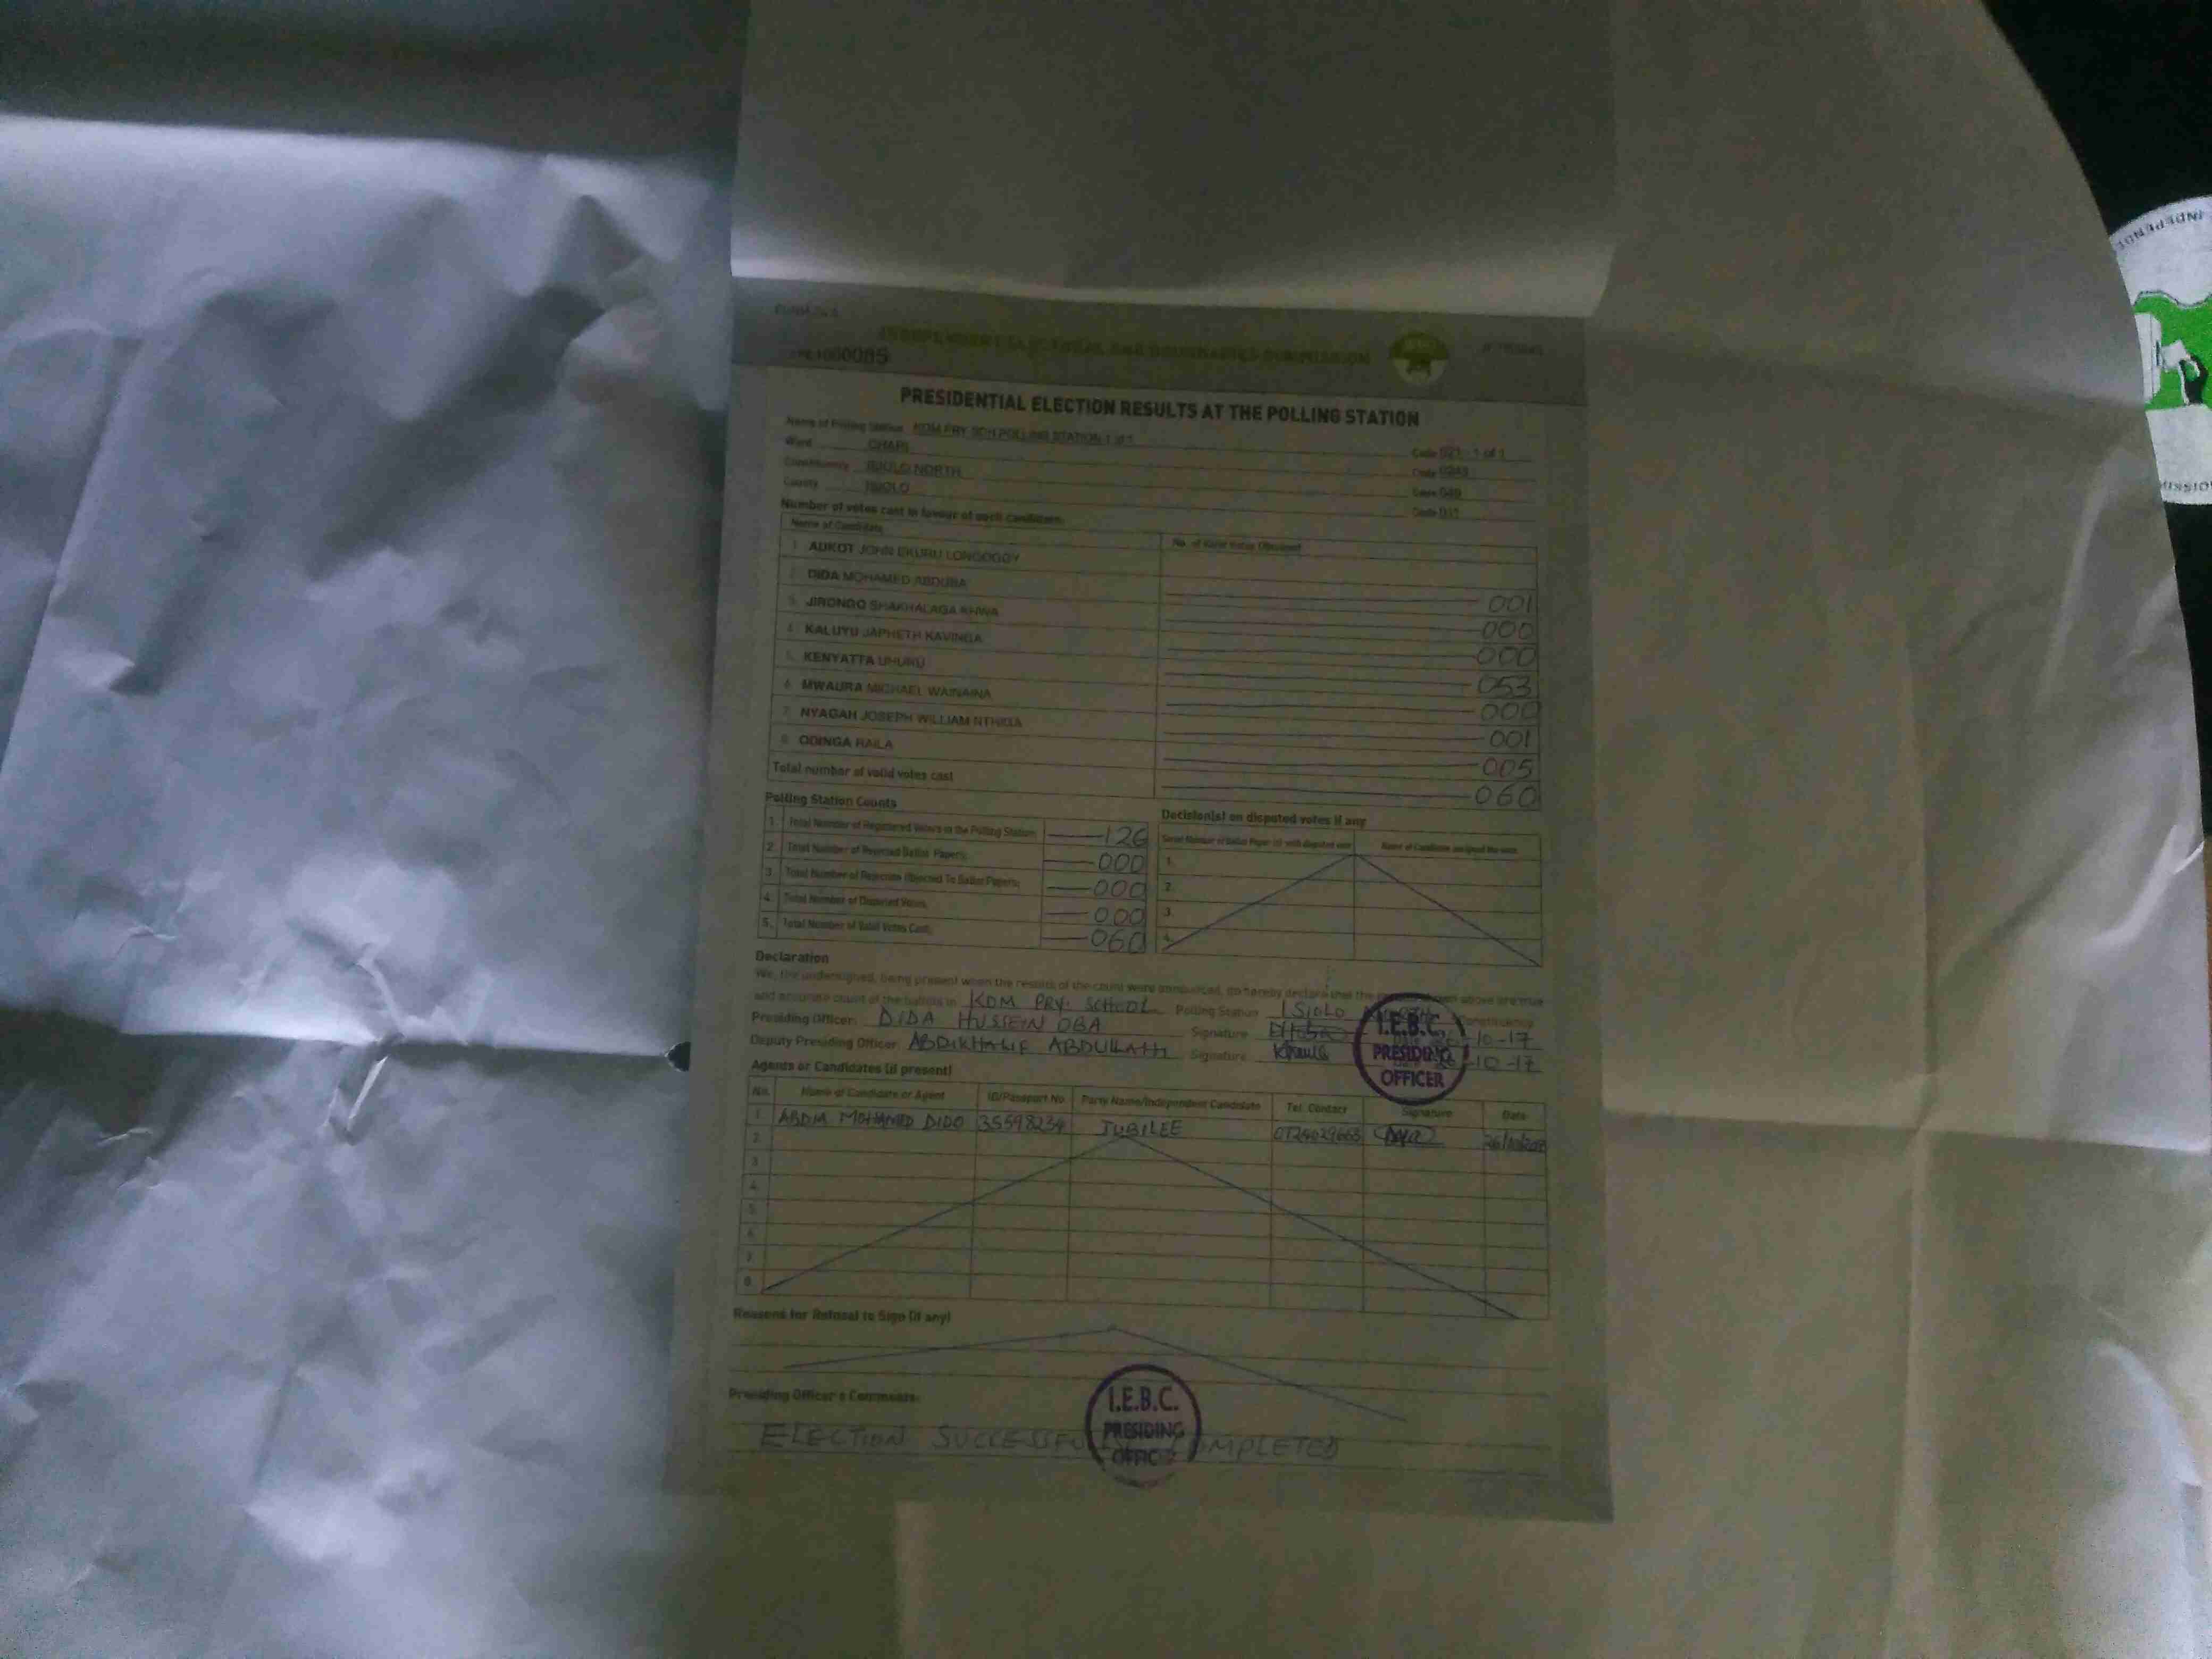 INDEPENDENT ELECTORAL AND BOUNDARIES COMMISSION
PRESIDENTIAL ELECTION RESULTS AT THE POLLING STATION
Name of Polling Station KOM PRY SCH POLLING STATION 1 of 1 Code 021 - 1 of 1
Ward CHARI
Constituency ISIOLO NORTH Code 049
County ISIOLO Code 011
Number of votes cast in favour of each candidate
Name of Candidate No. of Valid Votes Obtained
1. AUKOT JOHN EKURU LONGOGGY 001
2. DIDA MOHAMED ABDUBA 000
3. JIRONGO SHAKHALAGA KHWA 000
4. KALUYU JAPHETH KAVINGA
5. KENYATTA UHURU 053
6. MWAURA MICHAEL WAINAINA 000
7. NYAGAH JOSEPH WILLIAM NTHIGA 001
8. ODINGA RAILA 005
Total number of valid votes cast 060
Polling Station Counts
1. Total Number of Registered Voters in the Polling Station 126
2. Total Number of Rejected Ballot Papers 000
3. Total Number of Rejection Objected To Ballot Papers 000
4. Total Number of Disputed Votes 000
5. Total Number of Valid Votes Cast 060
Decision(s) on disputed votes if any
Serial Number of Ballot Paper (s) with disputed vote Name of Candidate assigned the vote
1.
2.
3.
4.
Declaration
We, the undersigned, being present when the results of the count were announced, do hereby declare that the above are true
and accurate count of the ballots in KOM PRY. SCHOOL Polling Station ISIOLO Constituency
Presiding Officer: DIDA HUSSEIN OBA Signature 10-17
Deputy Presiding Officer: ABDIKHALIF ABDULLAHI Signature 10-17
I.E.B.C.
PRESIDING
OFFICER
Agents or Candidates (if present)
No. Name of Candidate or Agent ID/Passport No Party Name/Independent Candidate Tel. Contact Signature Date
1 ABDIA MOHAMED DIDO 35598234 JUBILEE
2
3
4
5
6
7
8
Reasons for Refusal to Sign (if any)
Presiding Officer's Comments:
ELECTION COMPLETED
I.E.B.C.
PRESIDING
OFFICER